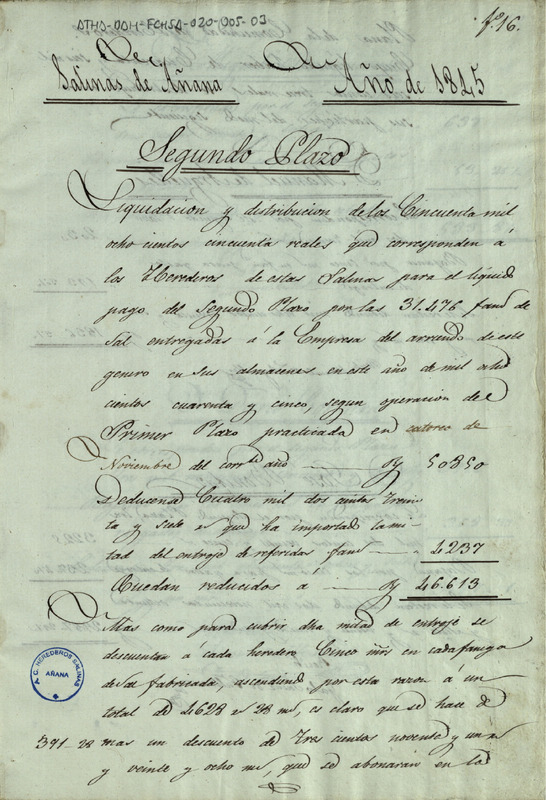 ATHA-DAH-FCHSA-020-005-03
fº 16.
Salinas de Añana Año de 1845
Segundo Plazo
Liquidacion y distribucion de los Cincuenta mil
ocho cientos cincuenta reales que corresponden á
los Herederos de estas Salinas para el líquido
pago del Segundo Plazo por las 31.476 fans de
Sal entregadas á la Empresa del arriendo de este
genero en sus almacenes en este año de mil ocho
cientos cuarenta y cinco, segun operacion del
Primer Plazo practicada en catorce de
Noviembre del corrte año 50850
Deducense Cuatro mil dos cientos trein
ta y siete rs que ha importado la mi-
tad del entroje de referidas fans 4237
Quedan reducidos á 46.613
Mas como para cubrir dha mitad de entroje se
descuentan á cada heredero Cinco mrs en cada fanega
de sal fabricada, ascendiendo por esta razon á un
total de 4628 rs 28 ms, es claro que se hace de
391.28 mas un descuento de tres cientos noventa y un rs
y veinte y ocho ms, que se abonarán en la
A. C. HEREDEROS SALINAS
AÑANA